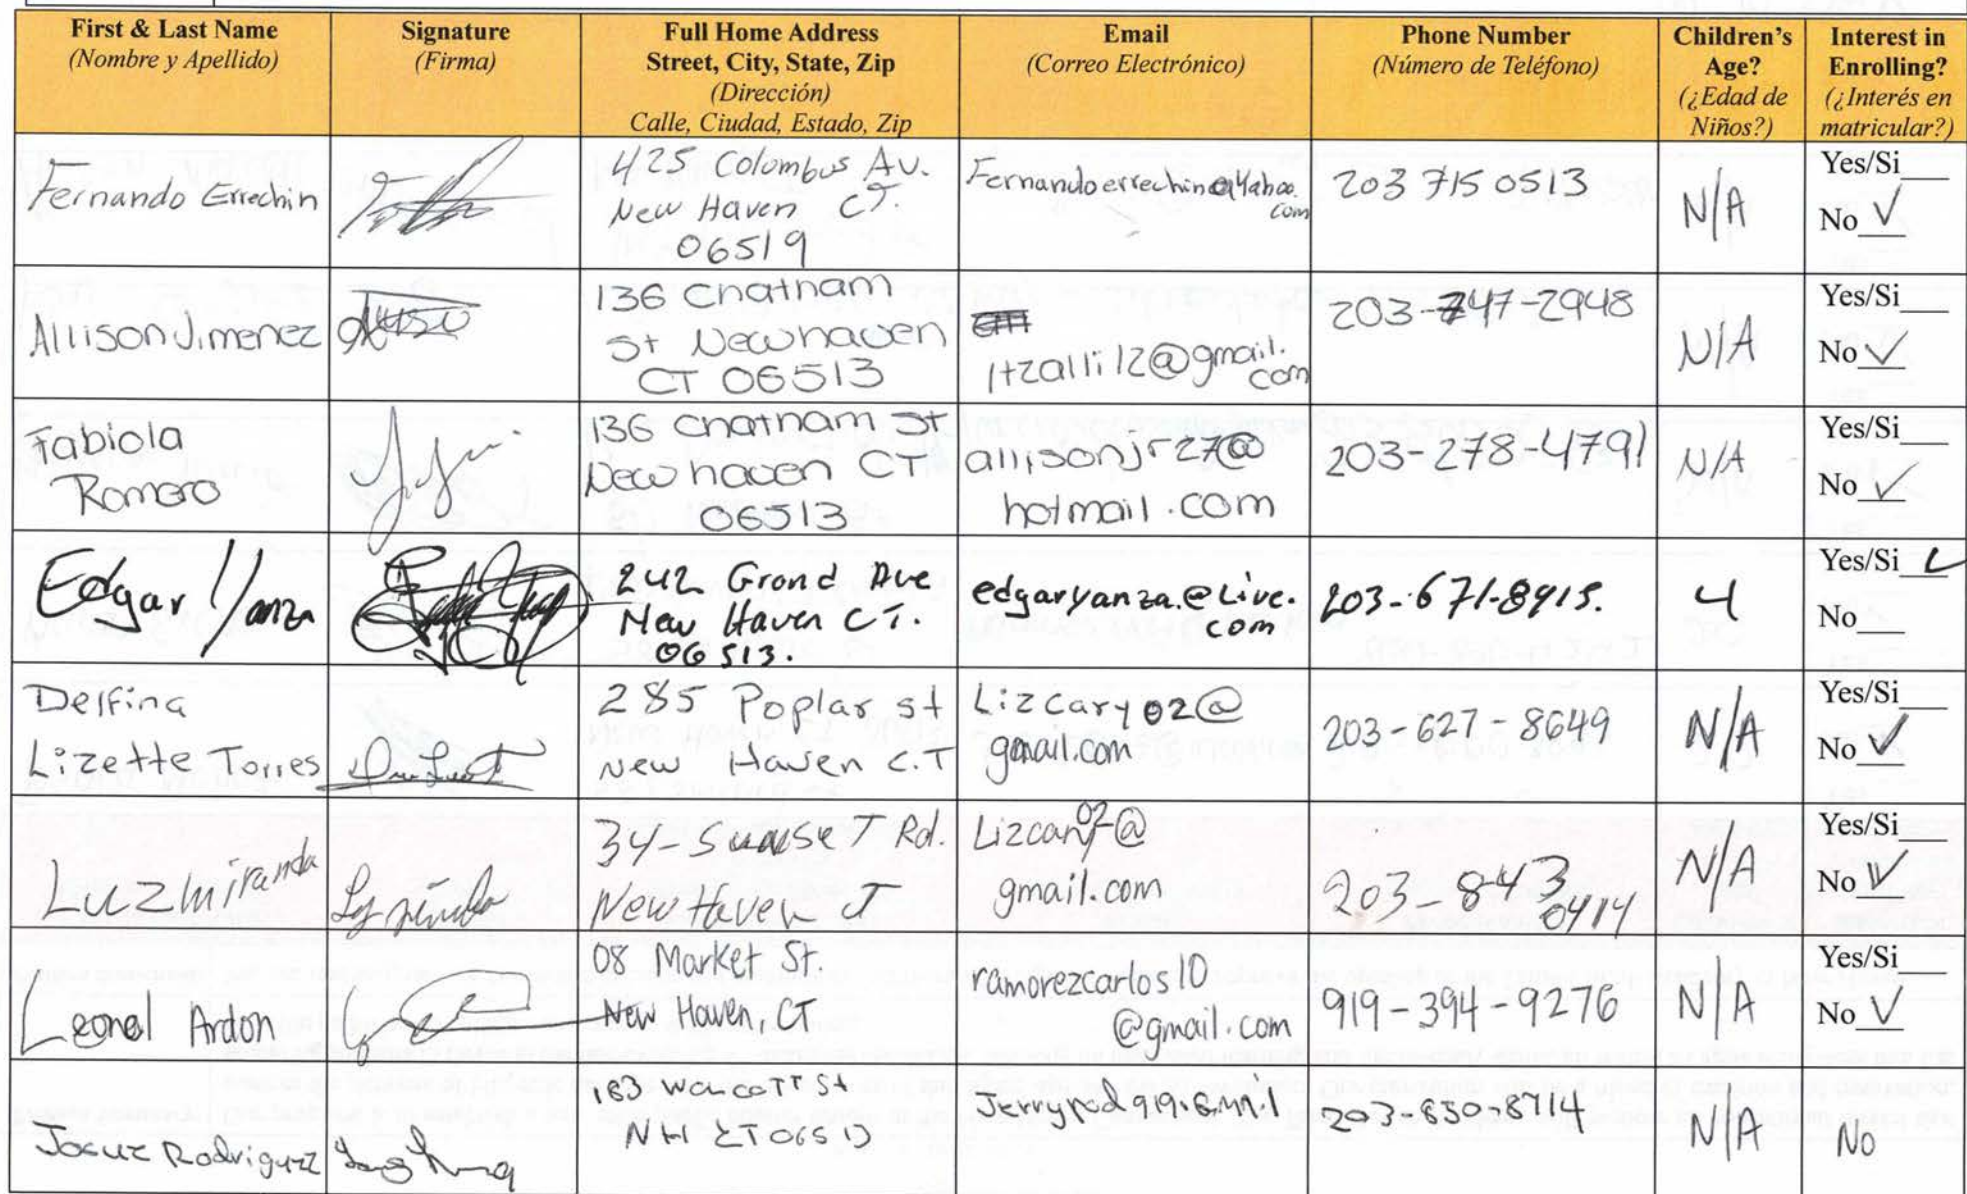 First & Last Name
(Nombre y Apellido)
Signature
(Firma)
Full Home Address
Street, City, State, Zip
(Dirección)
Calle, Ciudad, Estado, Zip
Email
(Correo Electrónico)
Phone Number
(Número de Teléfono)
Children's
Age?
(¿Edad de
Niños?)
Interest in
Enrolling?
(¿Interés en
matricular?)
Fernando Errechin
425 Colombus Av.
New Haven CT.
06519
Fernandoerrechin@Yahoo.
com
203 715 0513
N/A
Yes/Si
No ✓
Allison Jimenez
136 Chatham
St Newhaven
CT 06513
itzalli12@gmail.
com
203-747-2948
N/A
Yes/Si
No ✓
Fabiola
Romero
136 Chatham St
New haven CT
06513
allisonjr27@
hotmail.com
203-278-4791
N/A
Yes/Si
No ✓
Edgar Yanza
242 Grand Ave
New Haven CT.
06513.
edgaryanza.@Live.
com
203-671-8915.
4
Yes/Si ✓
No
Delfina
Lizette Torres
285 Poplar st
New Haven C.T
Lizcary02@
gmail.com
203-627-8649
N/A
Yes/Si
No ✓
Luz miranda
34-Sunset Rd.
New Haven CT
Lizcary02@
gmail.com
203-843
0414
N/A
Yes/Si
No ✓
Leonel Ardon
08 Market St.
New Haven, CT
ramorezcarlos10
@gmail.com
919-394-9276
N/A
Yes/Si
No ✓
Josue Rodriguez
183 St
NH CT 06513
203-850-8714
N/A
No